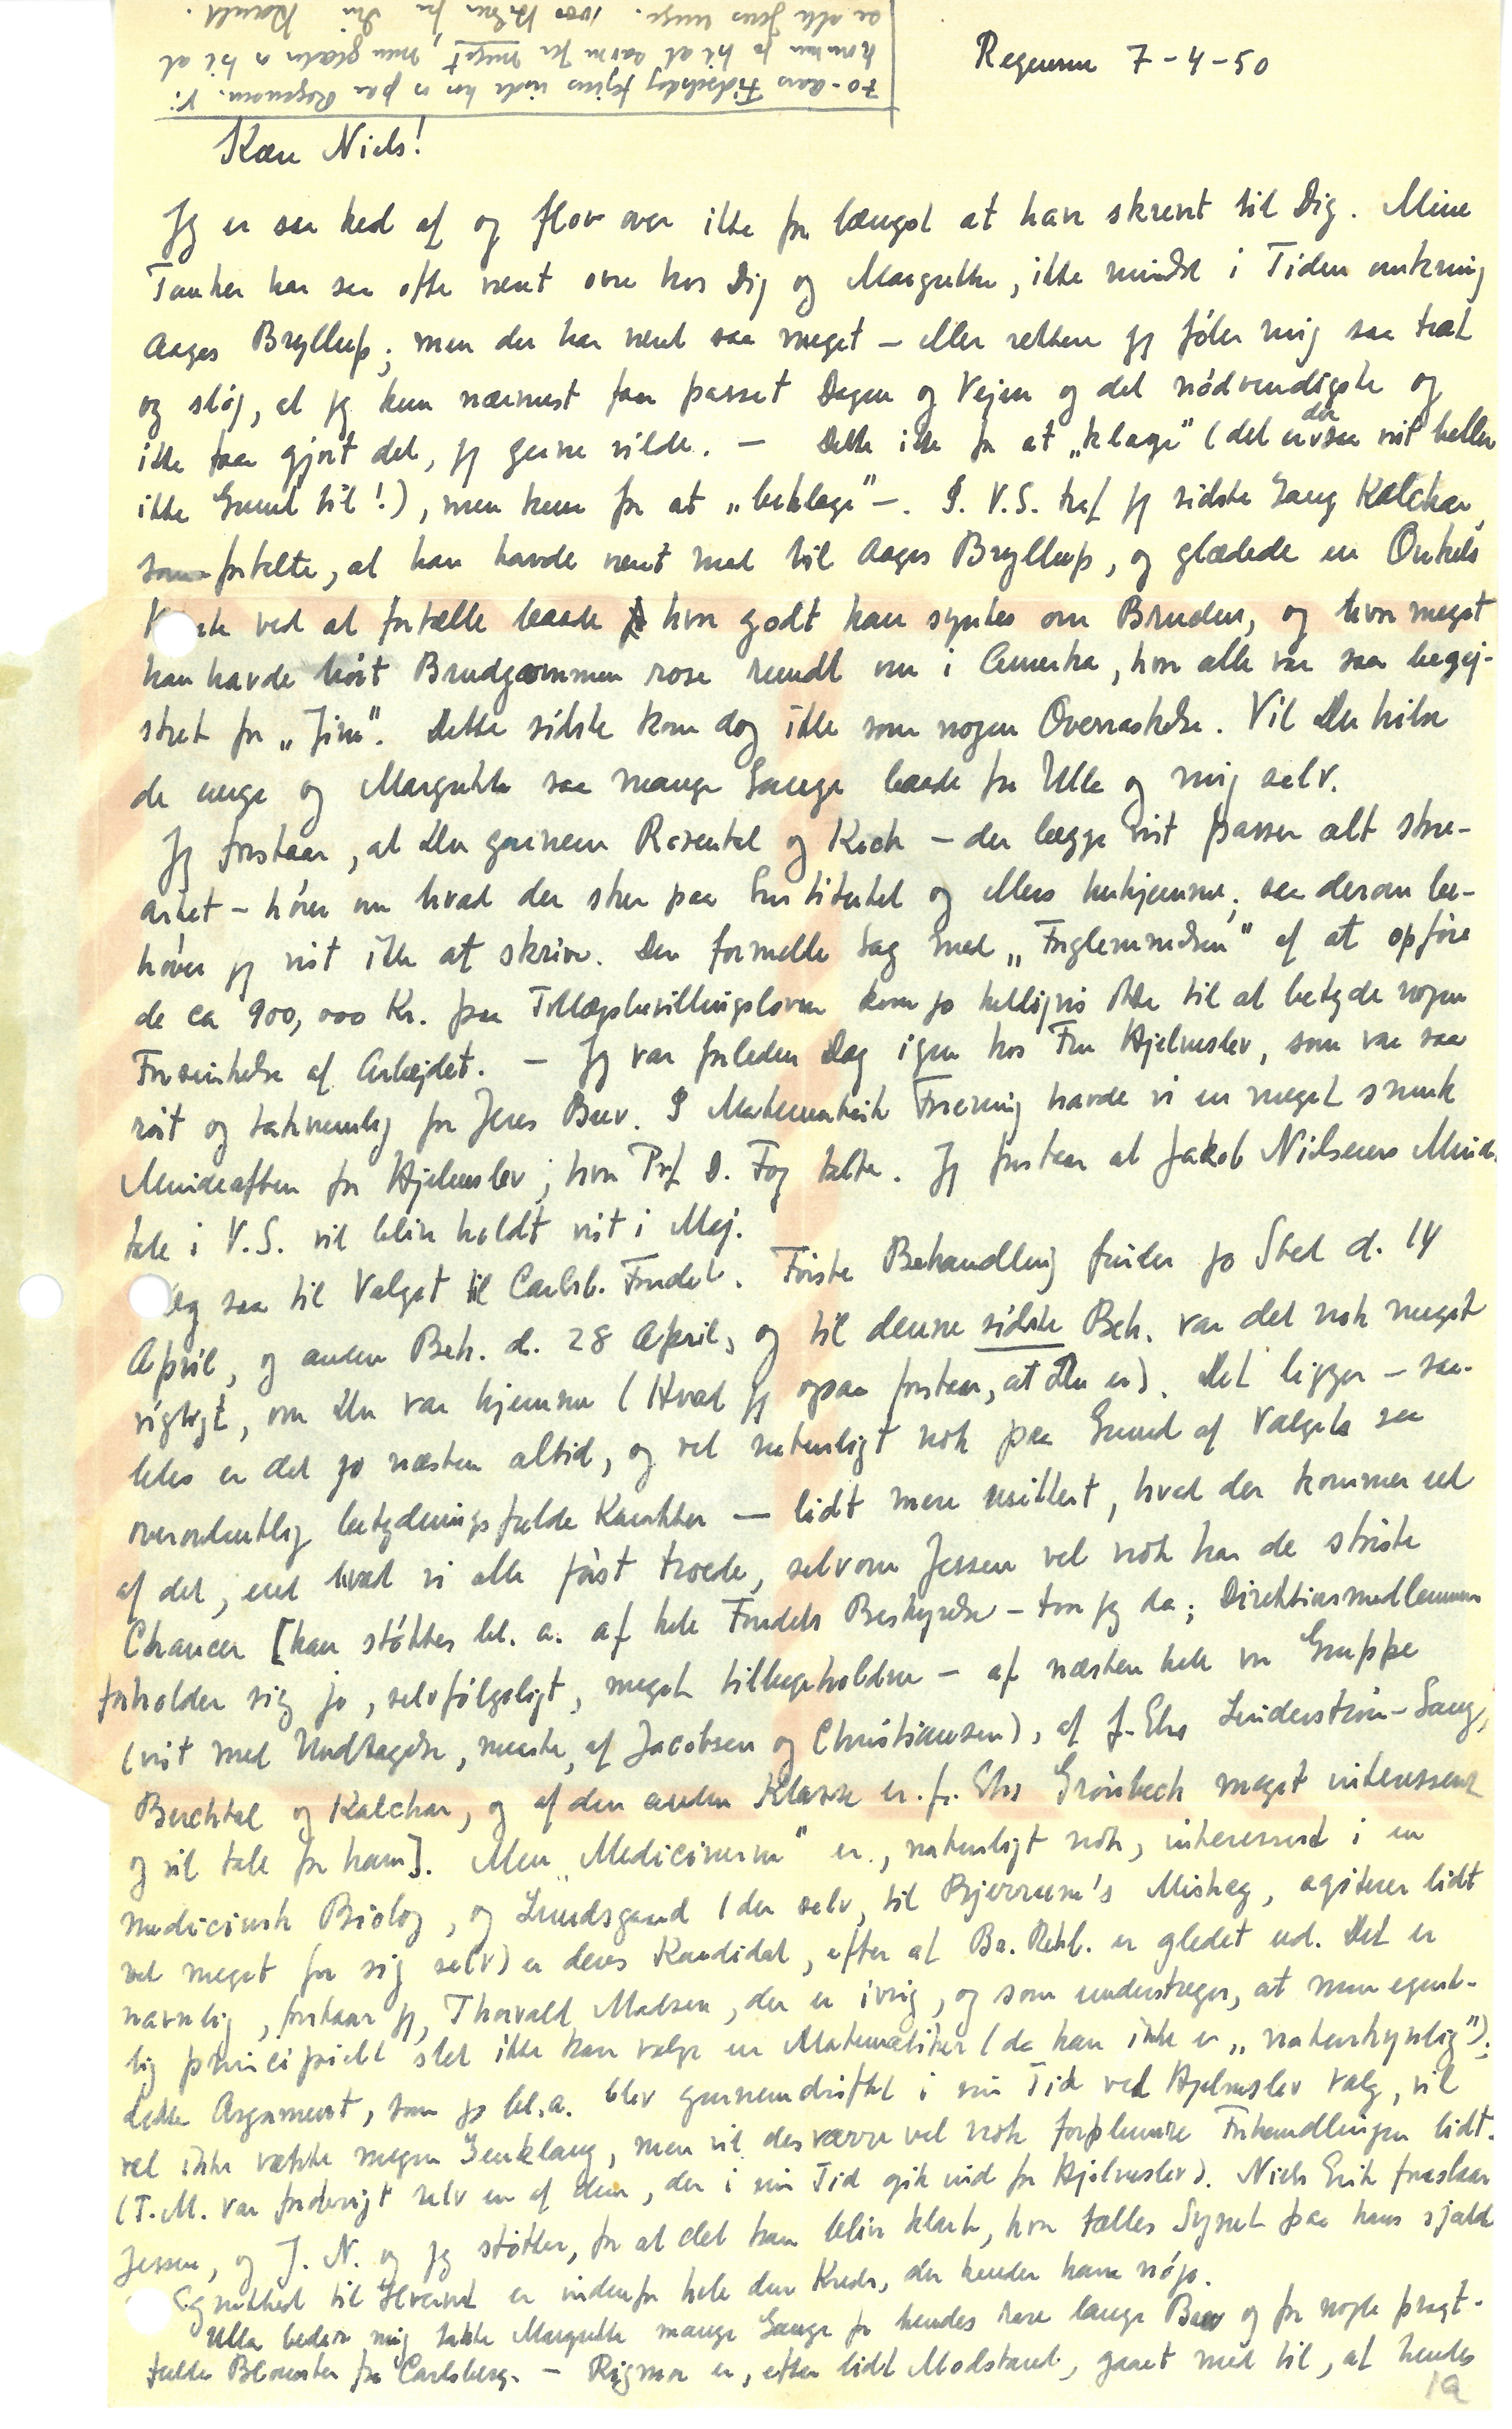 Regensen 7-4-50
Kære Niels!
Jeg er saa ked af og flov over ikke for længst at have skrevet til Dig. Mine
Tanker har saa ofte været ovre hos Dig og Margrethe, ikke mindst i Tiden omkring
Aages Bryllup; men der har været saa meget – eller rettere jeg føler mig saa træt
og sløj, at jeg kun nærmest faar passet Dagen og Vejen og det nødvendigste og
ikke faar gjort det, jeg gerne vilde. — Dette ikke for at „klage" (det er der saa vist heller
ikke Grund til!), men kun for at „beklage" –. I V.S. traf jeg sidste Gang Kalckar,
som fortalte, at han havde været med til Aages Bryllup, og glædede en Onkels
ved at fortælle baade hvor godt han syntes om Bruden, og hvor meget
han havde hørt Brudgommen rose rundt om i Amerika, hvor alle var saa begej-
stret for „Jim". Dette sidste kom dog ikke som nogen Overraskelse. Vil Du hilse
de unge og Margrethe saa mange Gange baade fra Ulla og mig selv.
Jeg forstaar, at Du gennem Rozental og Koch – der begge vist passer alt stor-
artet – hører om hvad der sker paa Institutet og ellers herhjemme; saa derom be-
høver jeg vist ikke at skrive. Den formelle Sag med „Forglemmelsen" af at opføre
de ca 900,000 Kr. paa Tillægsbevillingsloven kom jo heldigvis ikke til at betyde nogen
Forsinkelse af Arbejdet. – Jeg var forleden Dag igen hos Fru Hjelmslev, som var saa
rørt og taknemlig for Jeres Brev. I Matematisk Forening havde vi en meget smuk
Mindeaften for Hjelmslev, hvor Prof. D. Fog talte. Jeg forstaar at Jakob Nielsens Minde-
tale i V.S. vil blive holdt vist i Maj.
Og saa til Valget til Carlsb. Fondet. Første Behandling finder jo Sted d. 14
April, og anden Beh. d. 28 April, og til denne sidste Beh. var det nok meget
vigtigt, om Du var hjemme (Hvad jeg ogsaa forstaar, at Du er). Det ligger – saa-
ledes er det jo næsten altid, og vel naturligt nok paa Grund af Valgets saa
overordentlig betydningsfulde Karakter — lidt mere usikkert, hvad der kommer ud
af det, end hvad vi alle først troede, selvom Jessen vel nok har de største
Chancer [han støttes bl. a. af hele Fondets Bestyrelse – tror jeg da; Direktionsmedlemmerne
forholder sig jo, selvfølgeligt, meget tilbageholdne – af næsten hele vor Gruppe
(vist med Undtagelse, maaske, af Jacobsen og Christiansen), af f. Eks Linderstrøm-Lang,
Buchthal og Kalckar, og af den anden Klasse er f. Eks Grønbech meget interesseret
og vil tale for ham]. Men „Medicinerne" er, naturligt nok, interesseret i en
medicinsk Biolog, og Lundsgaard (der selv, til Bjerrum's Mishag, agiterer lidt
vel meget for sig selv) er deres Kandidat, efter at Br. Rehb. er gledet ud. Det er
navnlig, forstaar jeg, Thorvald Madsen, der er ivrig, og som understreger, at man egent-
lig principielt slet ikke kan vælge en Matematiker (da han ikke er „naturkyndig");
dette Argument, som jo bl.a. blev gennemdrøftet i sin Tid ved Hjelmslevs Valg, vil
vel ikke vække megen Genklang, men vil desværre vel nok forplumre Forhandlingen lidt.
(T.M. var forøvrigt selv en af dem, der i sin Tid gik ind for Hjelmslev). Niels Erik foreslaar
Jessen, og J. N. og jeg støtter, for at det kan blive klart, hvor fælles Synet paa hans sjældne
Egnethed til Hvervet er indenfor hele den Kreds, der kender ham nøje.
Ulla beder mig takke Margrethe mange Gange for hendes kære lange Brev og for nogle pragt-
fulde Blomster fra Carlsberg. – Rigmor er, efter lidt Modstand, gaaet med til, at hendes
70-Aars Fødselsdag fejres inde hos os paa Regensen. Vi
kommer jo til at savne Jer meget, men glæder os til at
se alle Jeres unge. 1000 Hilsner fra Din Harald.
1a